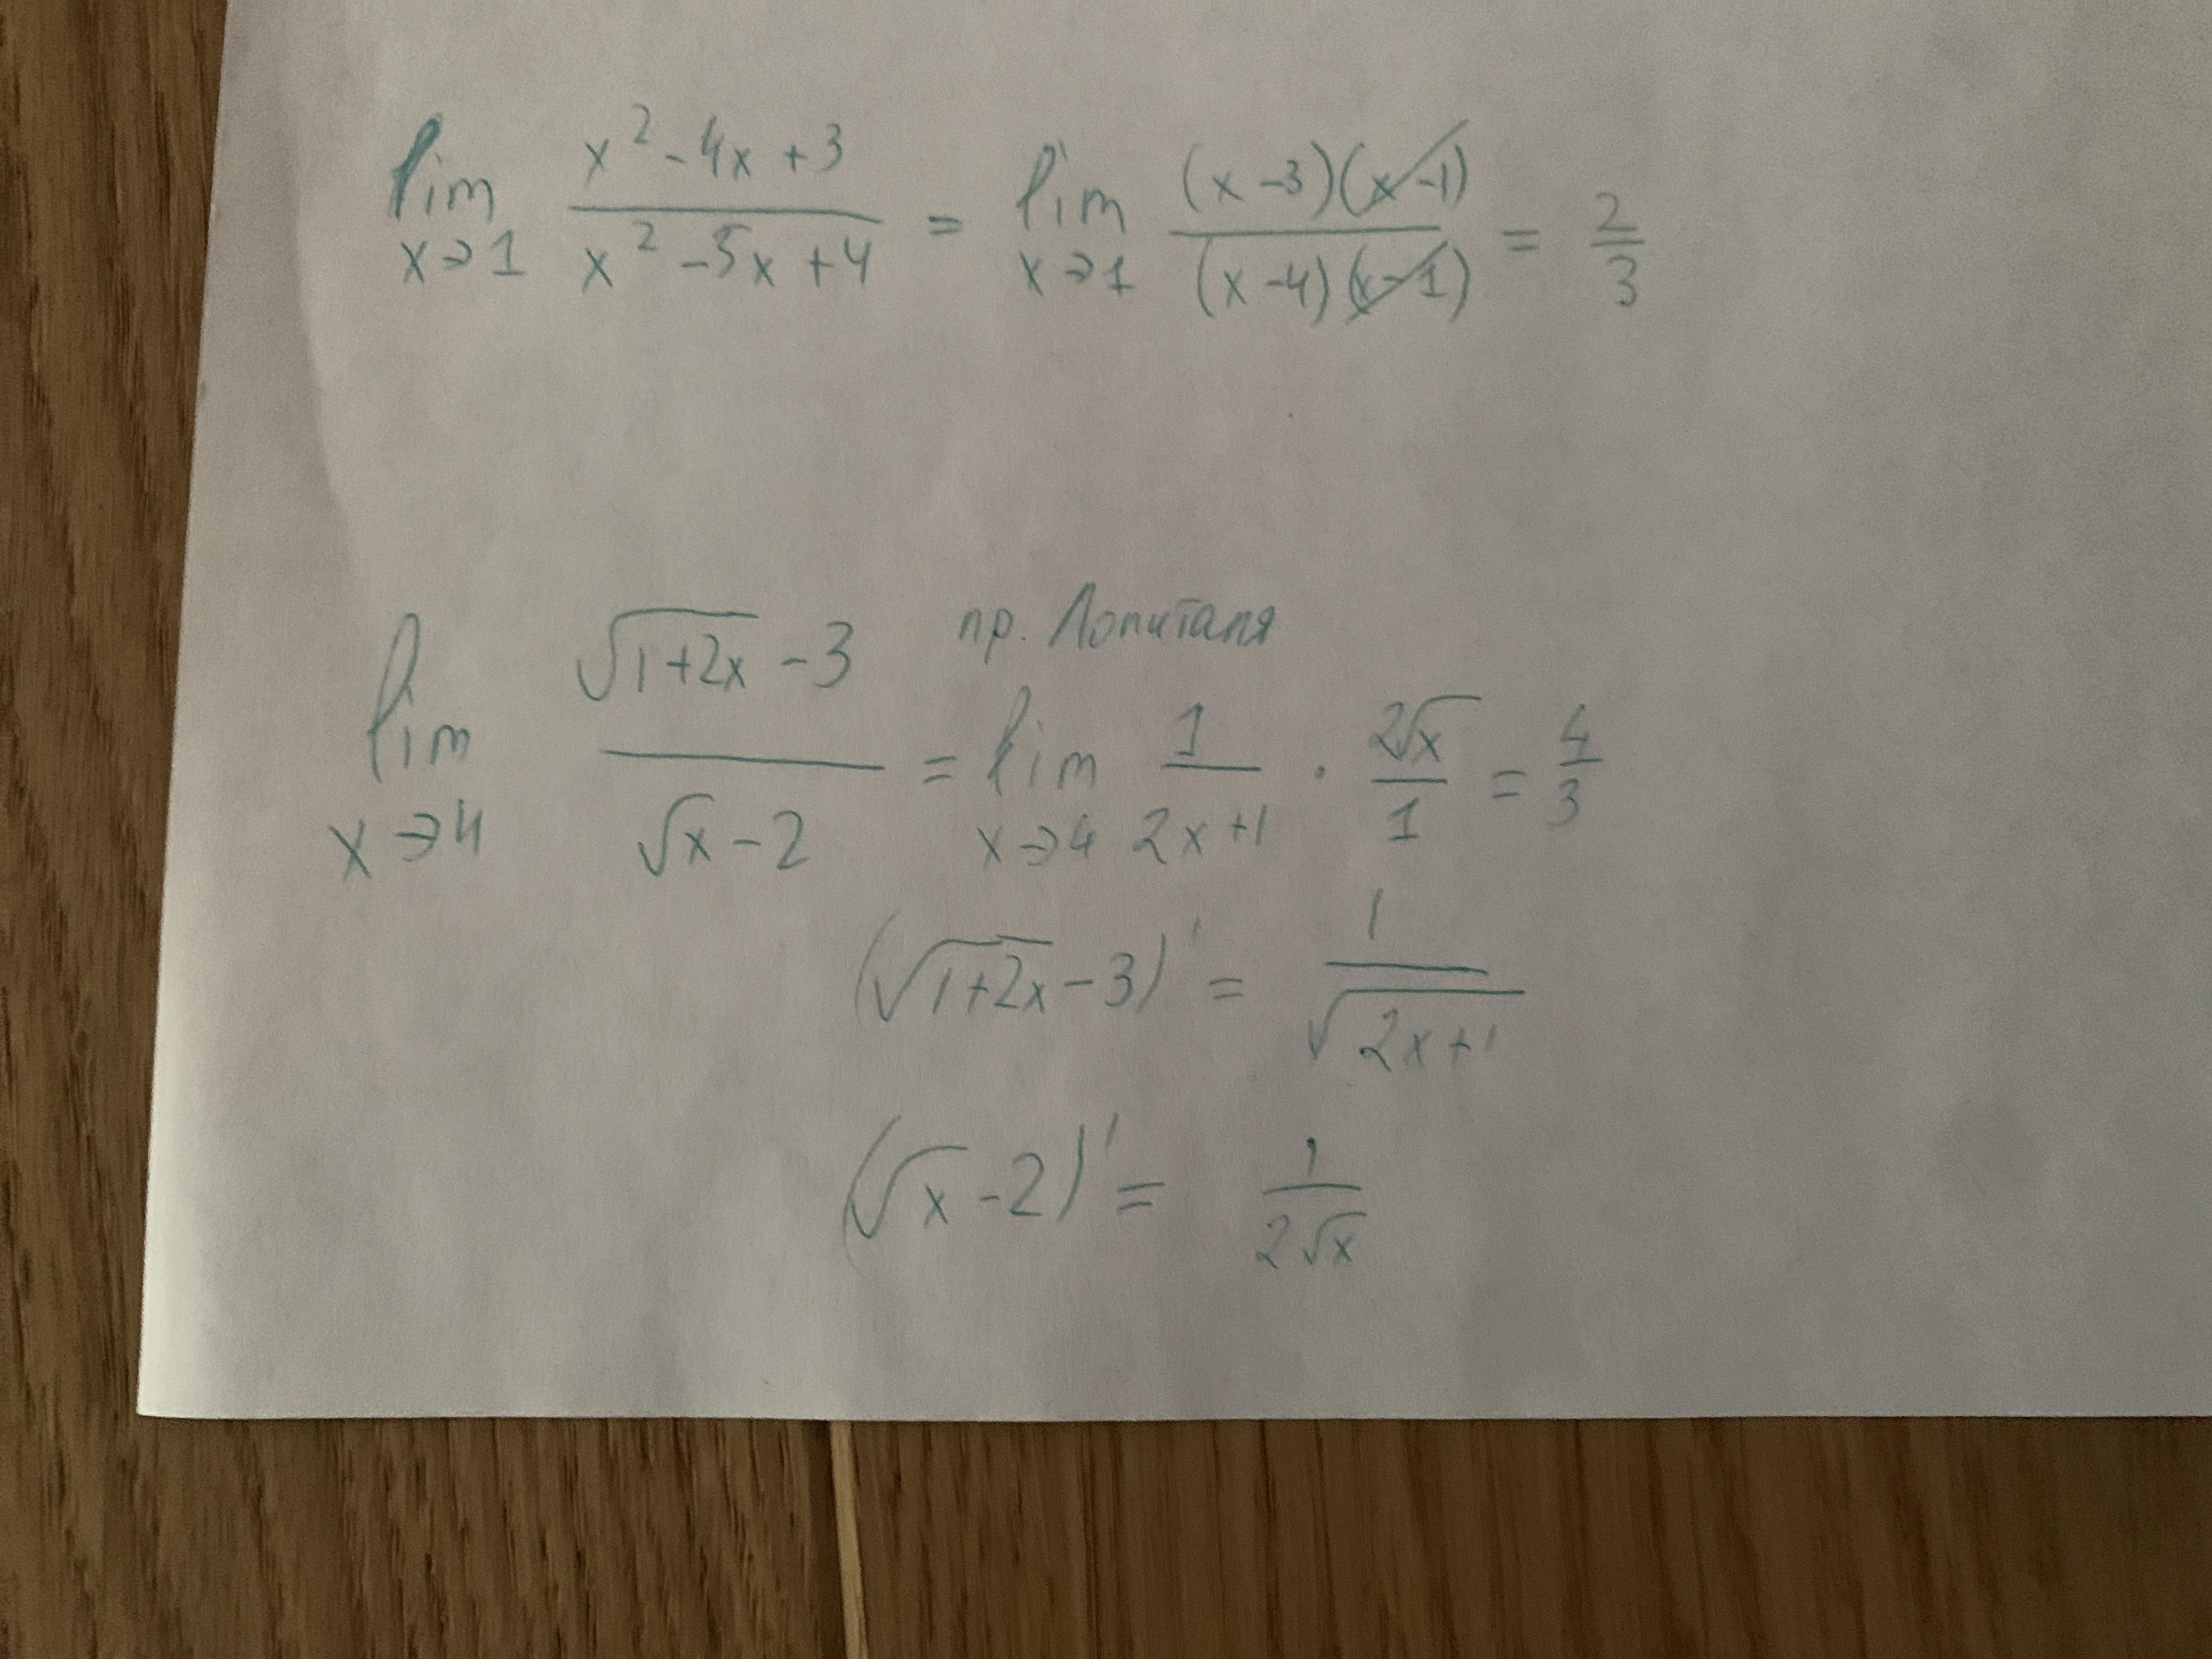 lim x→1 (x² - 4x + 3)/(x² - 5x + 4) = lim x→1 ((x - 3)(x - 1))/((x - 4)(x - 1)) = 2/3
пр. Лопиталя
lim x→4 (√(1+2x) - 3)/(√x - 2) = lim x→4 1/(2x+1) · 2√x/1 = 4/3
(√(1+2x) - 3)' = 1/√(2x+1)
(√x - 2)' = 1/(2√x)